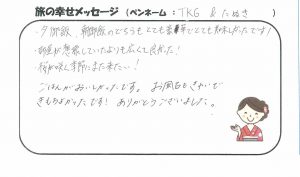 旅の幸せメッセージ (ペンネーム : TKG & たぬき )
・夕御飯、朝御飯のどちらもとても豪華でとても美味しかったです!
・部屋が想像していたよりも広くて良かった!
・桜が咲く季節にまた来たい!
ごはんがおいしかったです。お風呂もきれいで
きもちよかったです! ありがとうございました。